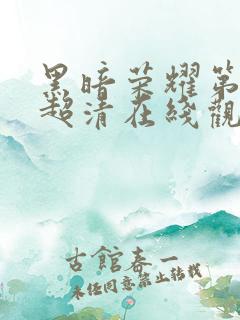 黑暗荣耀第
超清在线觀
古館春一
未经同意禁止转载